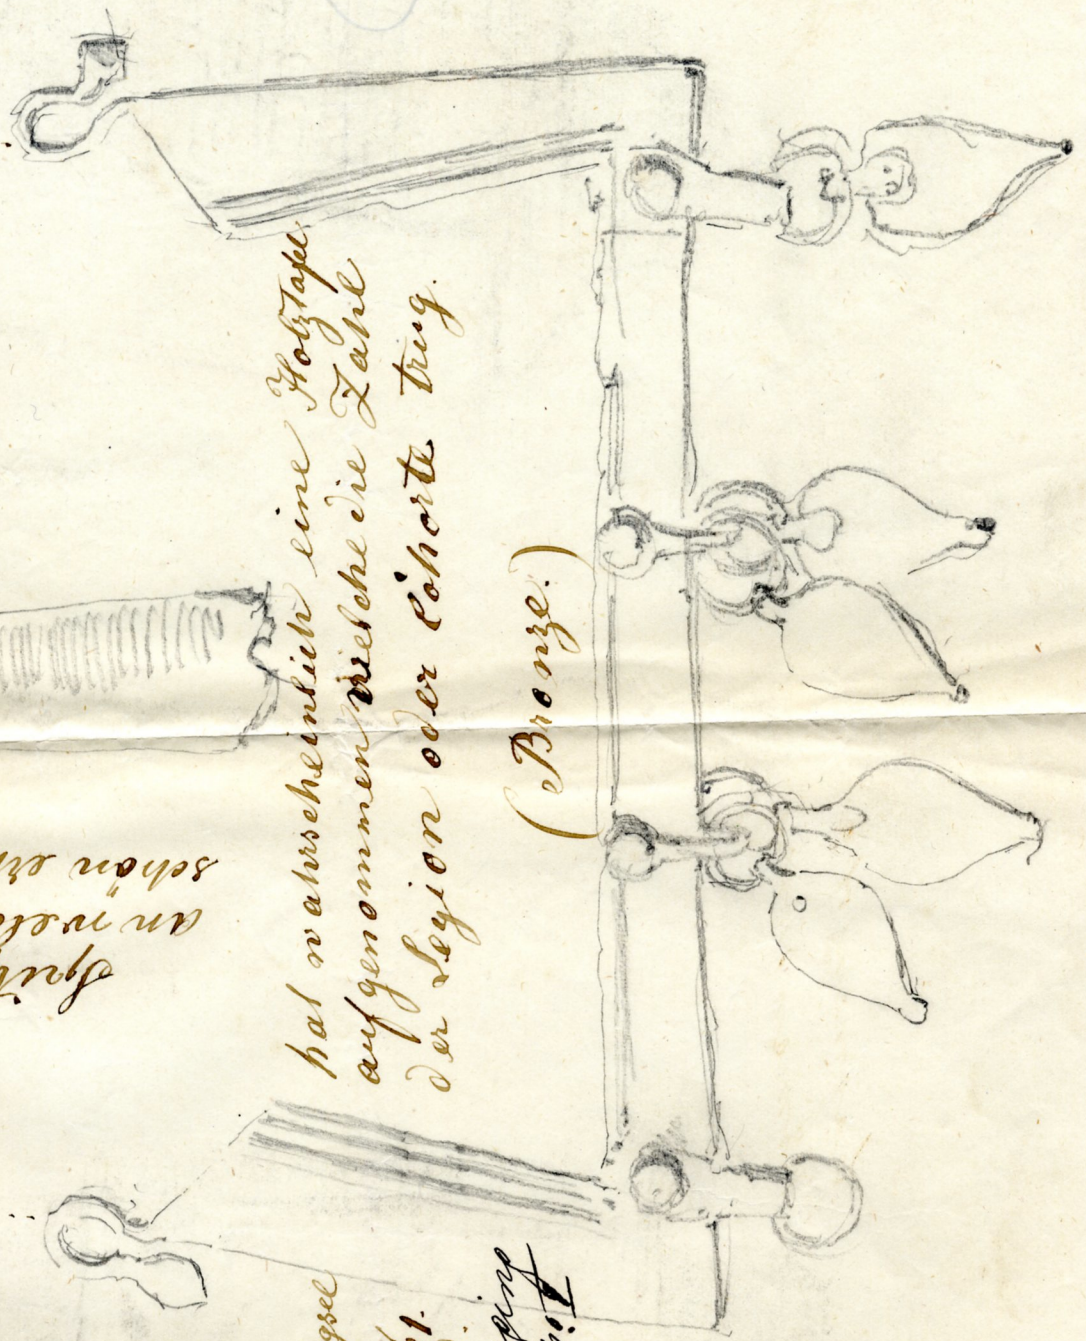 hat warscheinlich eine Holztafel
aufgenommen welche die Zahl
der Legion oder Cohorte trug.
(Bronze.)
schön
an